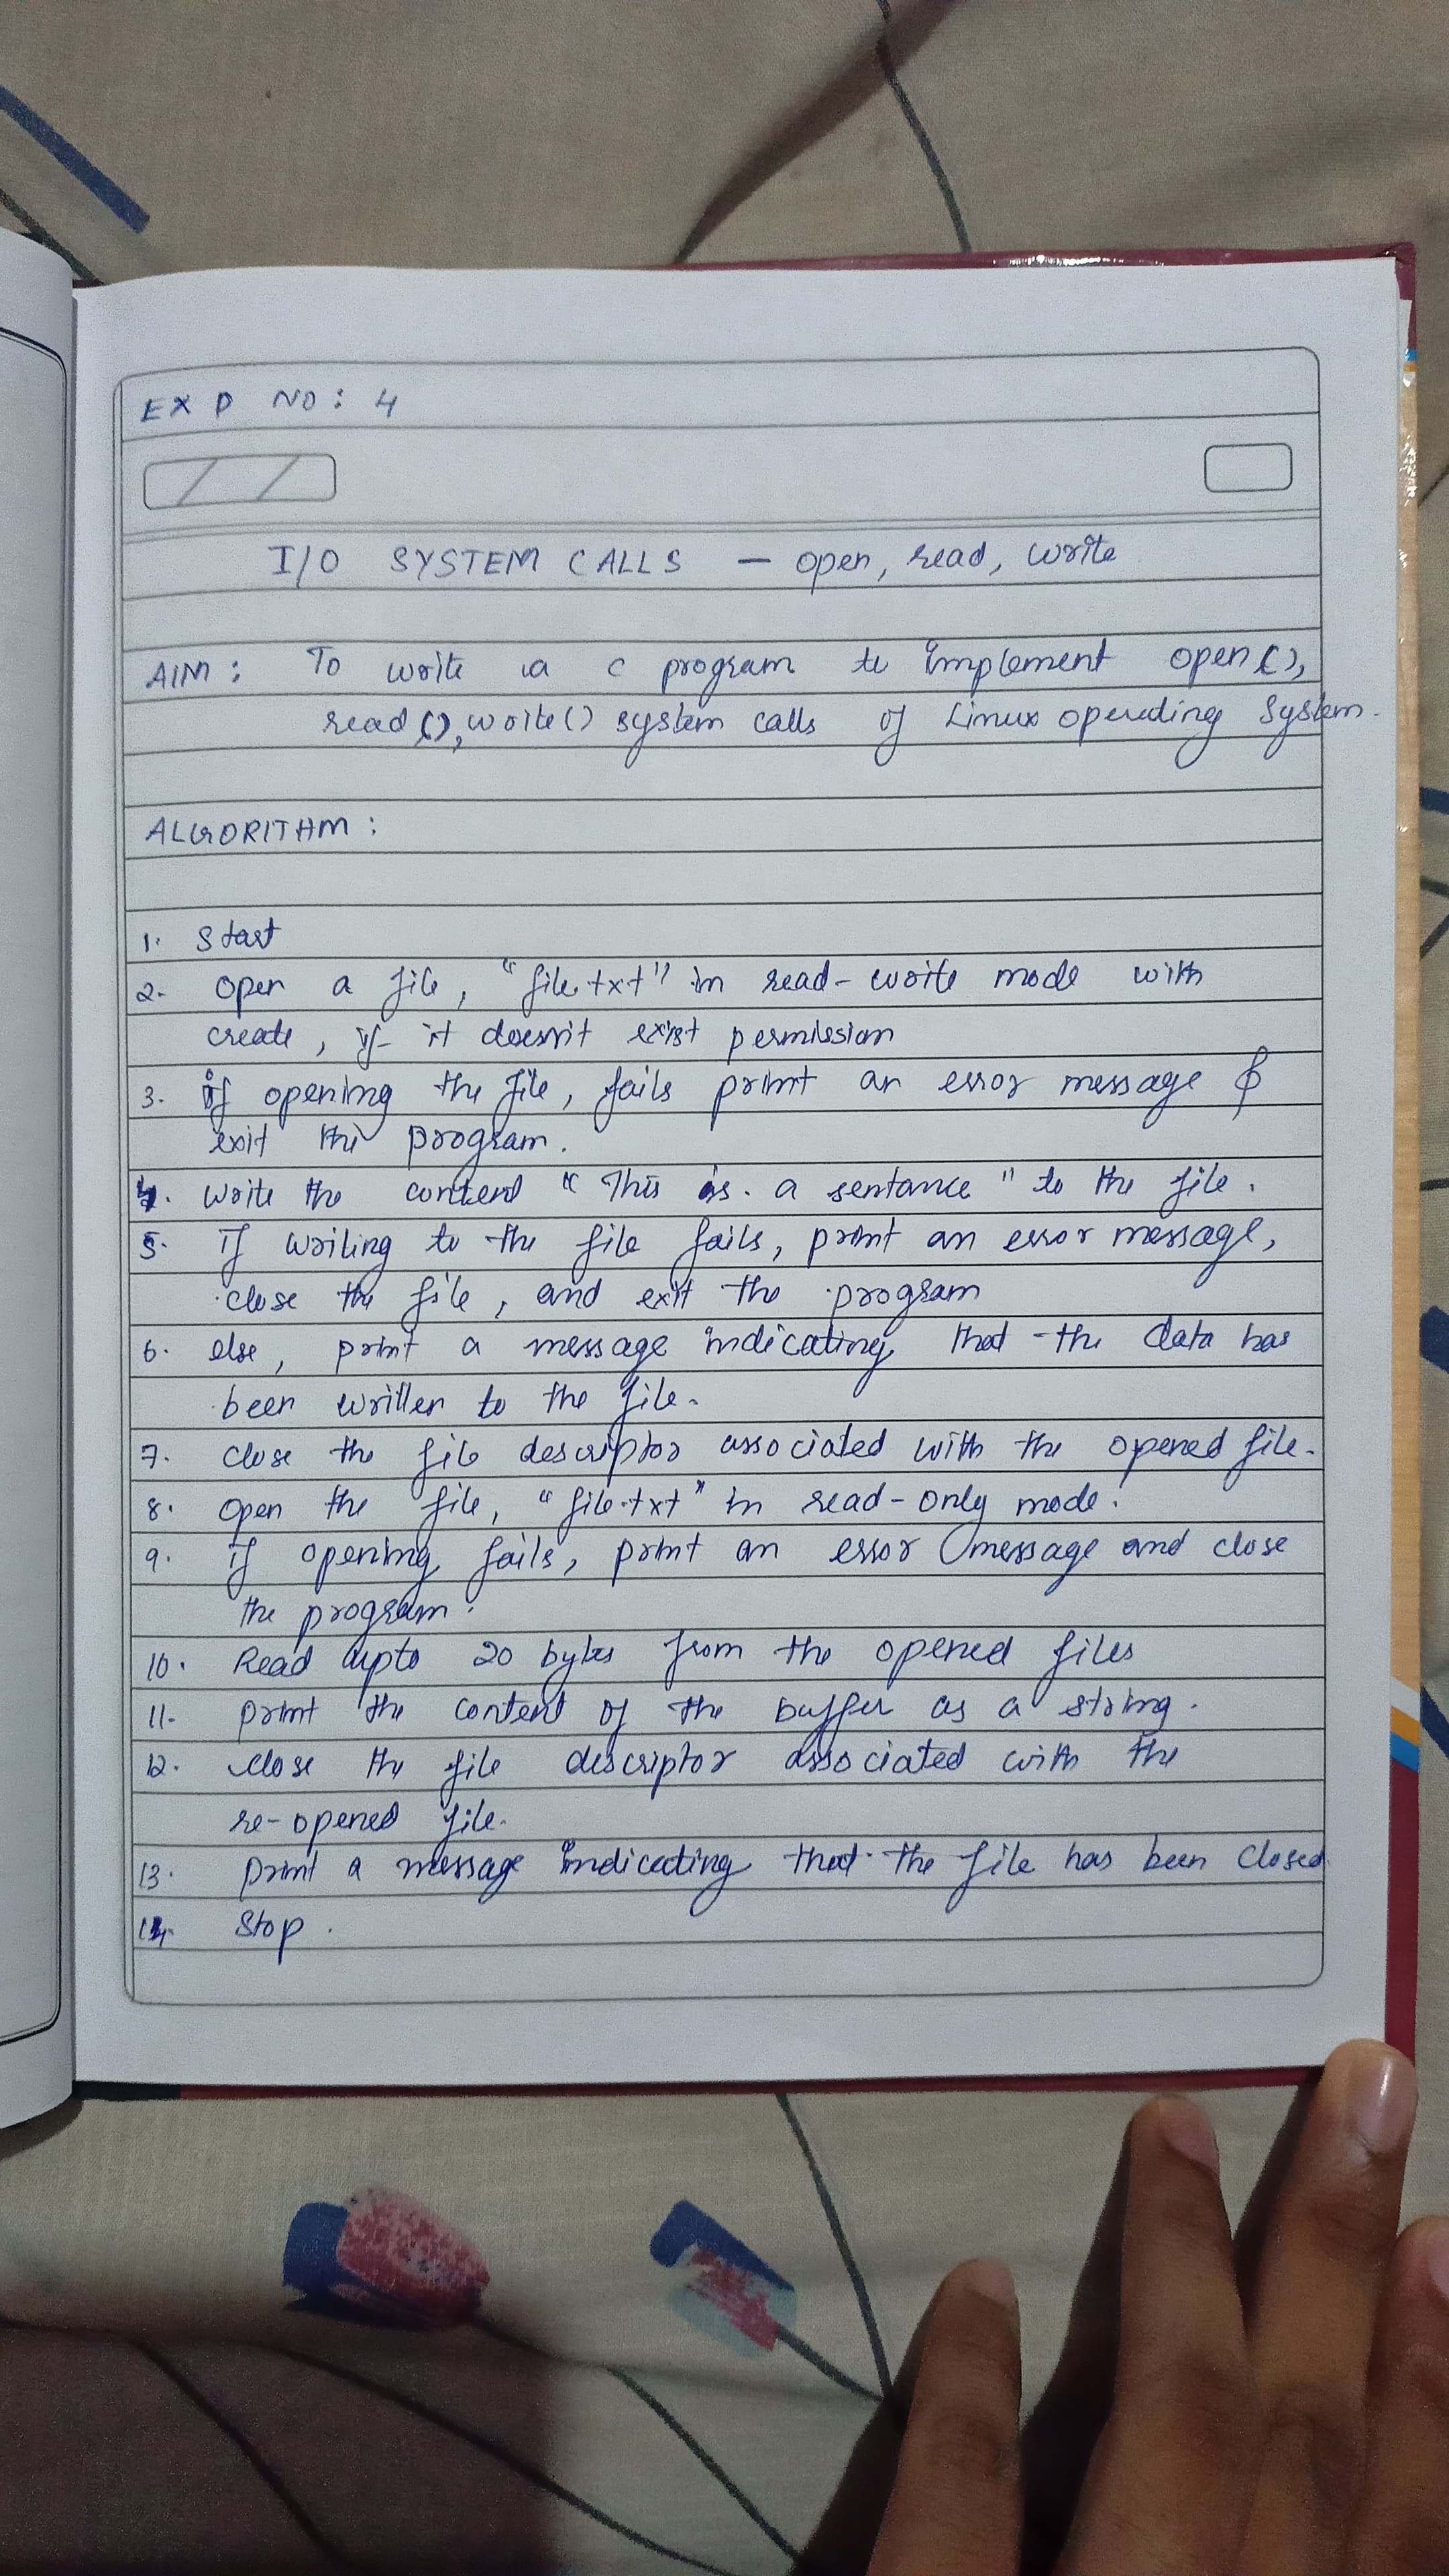 EXP NO: 4
I/O SYSTEM CALLS - open, read, write
AIM: To write a c program to implement open(),
read(), write() system calls of Linux operating System.
ALGORITHM:
1. Start
2. open a file, "file.txt" in read-write mode with
create, if it doesn't exist permission
3. if opening the file, fails print an error message &
exit the program.
4. write the content "This is a sentance" to the file.
5. If writing to the file fails, print an error message,
close the file, and exit the program
6. else, print a message indicating that the data has
been written to the file.
7. close the file descriptor associated with the opened file.
8. open the file, "file.txt" in read-only mode.
9. if opening fails, print an error message and close
the program.
10. Read upto 20 bytes from the opened files
11. print the content of the buffer as a string.
12. close the file descriptor associated with the
re-opened file.
13. print a message indicating that the file has been closed
14. Stop.